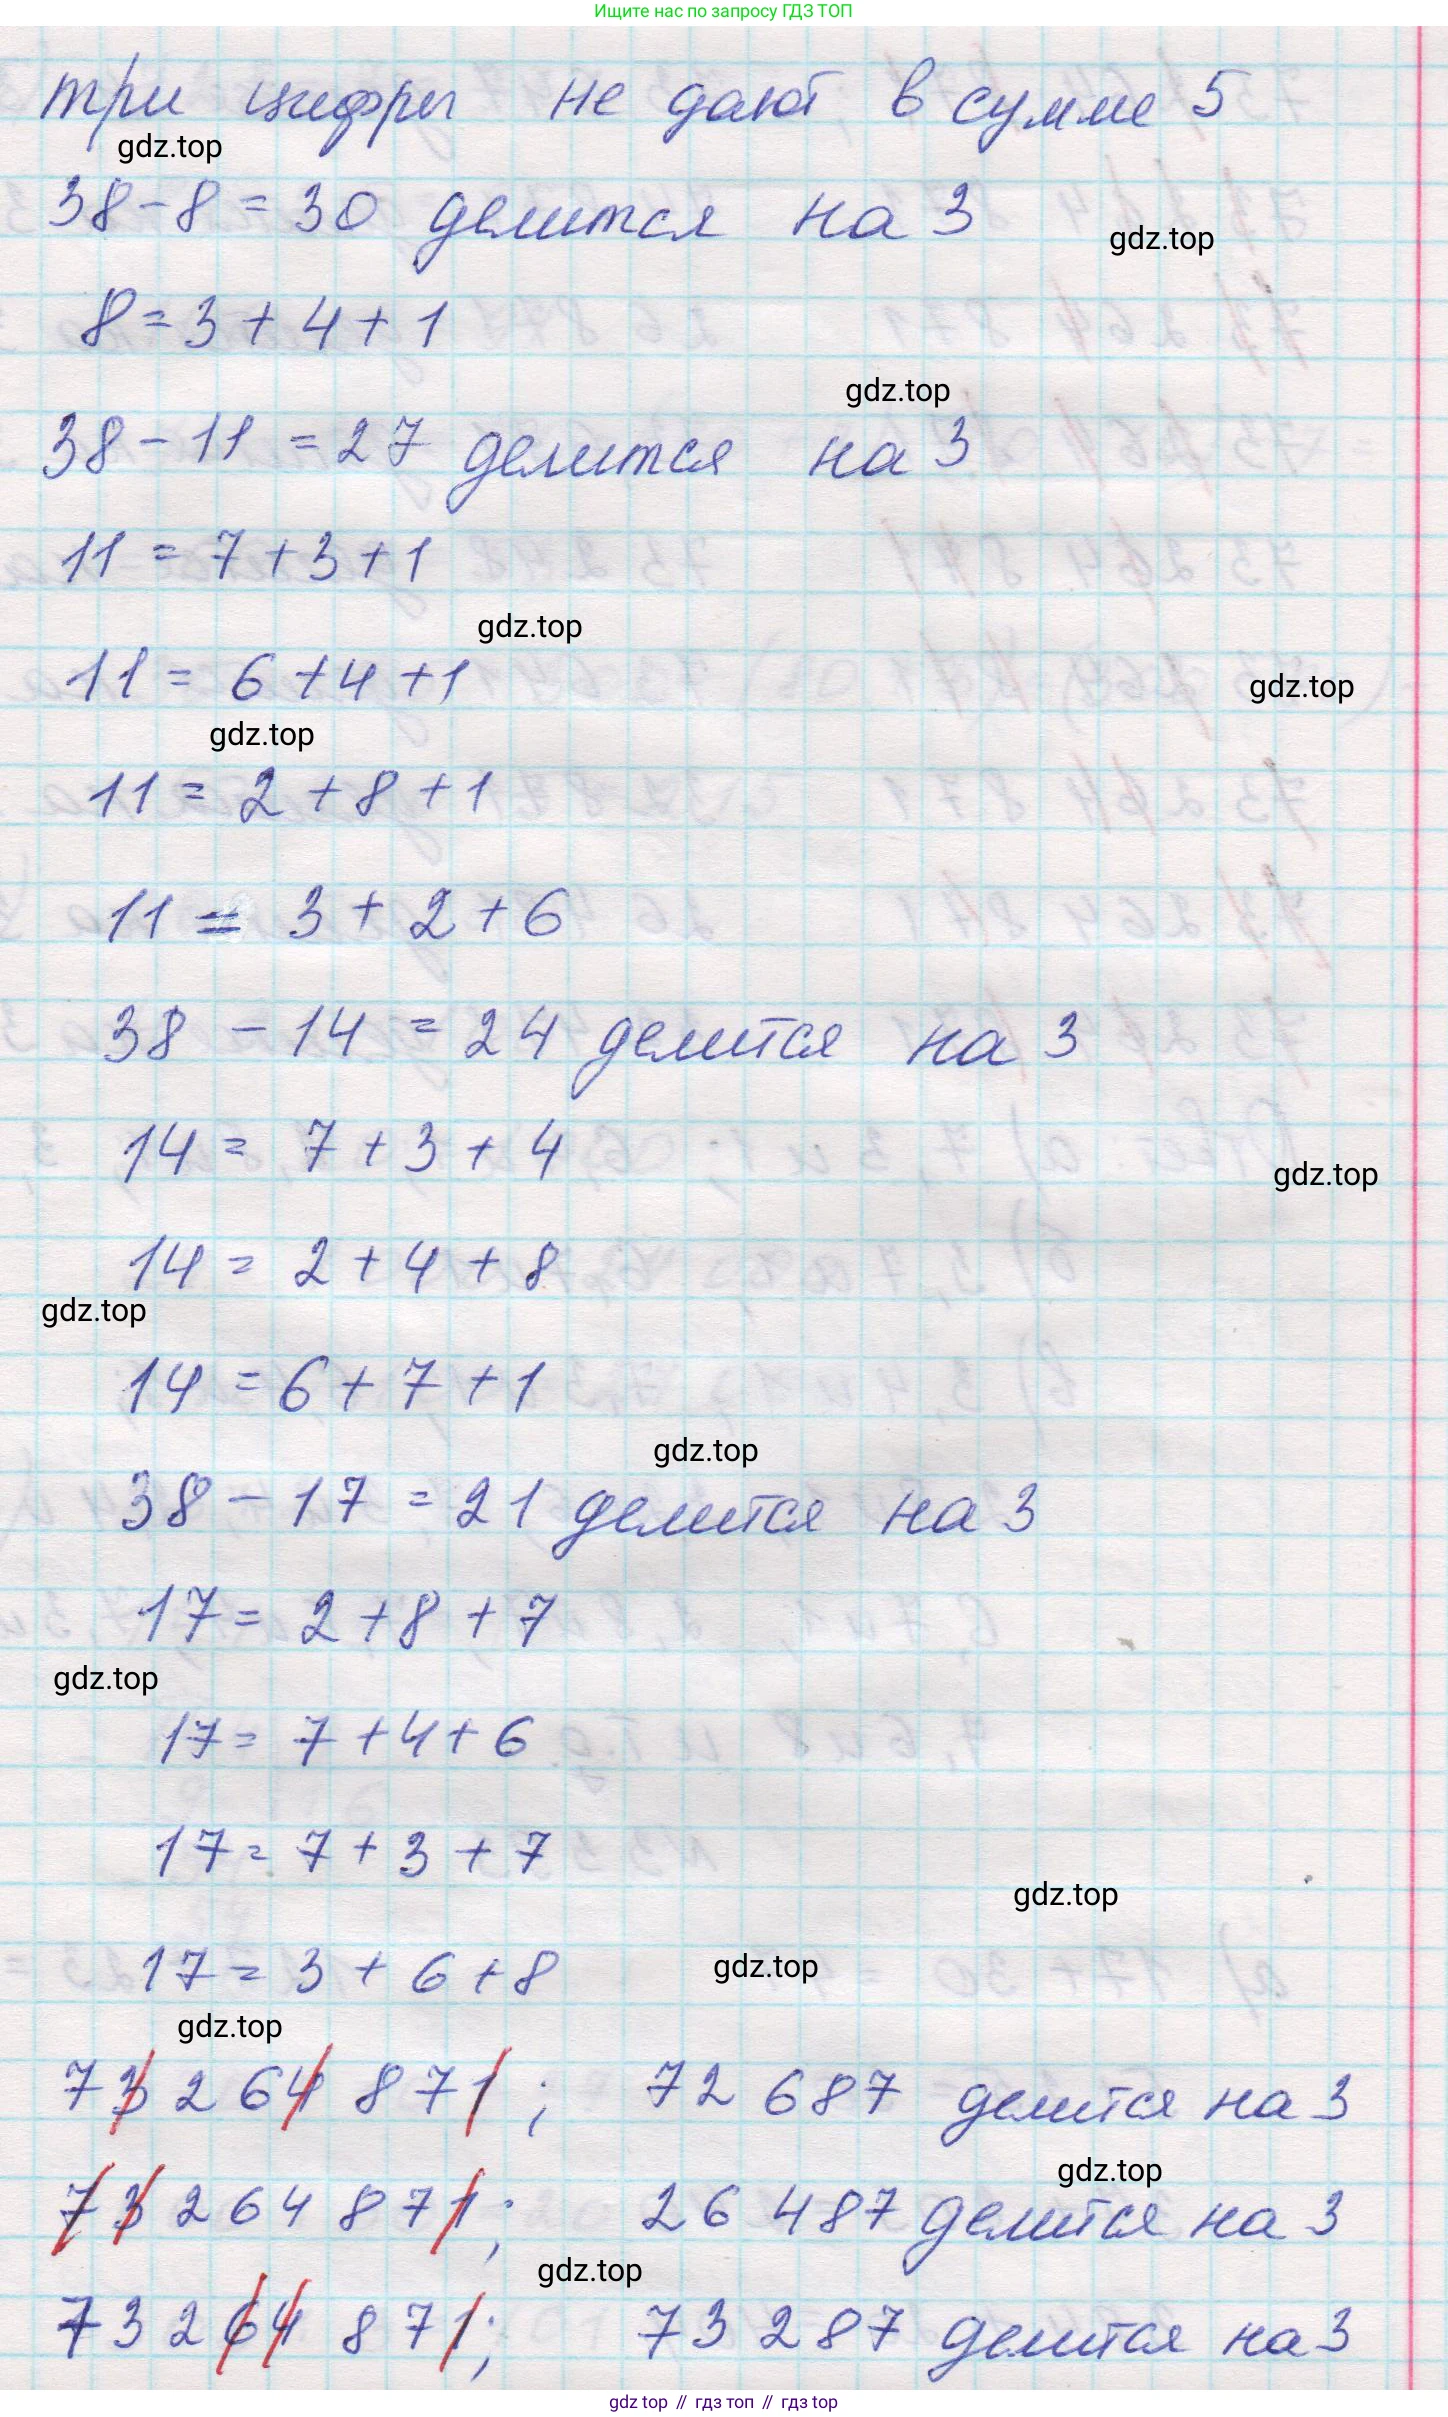 Ищите нас по запросу ГДЗ ТОП
три цифры не дают в сумме 5
gdz.top
38 - 8 = 30 делится на 3
gdz.top
8 = 3 + 4 + 1
gdz.top
38 - 11 = 27 делится на 3
11 = 7 + 3 + 1
gdz.top
11 = 6 + 4 + 1
gdz.top
gdz.top
11 = 2 + 8 + 1
11 = 3 + 2 + 6
38 - 14 = 24 делится на 3
14 = 7 + 3 + 4
gdz.top
14 = 2 + 4 + 8
gdz.top
14 = 6 + 7 + 1
gdz.top
38 - 17 = 21 делится на 3
17 = 2 + 8 + 7
gdz.top
17 = 7 + 4 + 6
17 = 7 + 3 + 7
gdz.top
17 = 3 + 6 + 8
gdz.top
gdz.top
73 264 871; 72 687 делится на 3
gdz.top
73 264 871; 26 487 делится на 3
gdz.top
73 264 871; 73 287 делится на 3
gdz top // гдз топ // гдз top